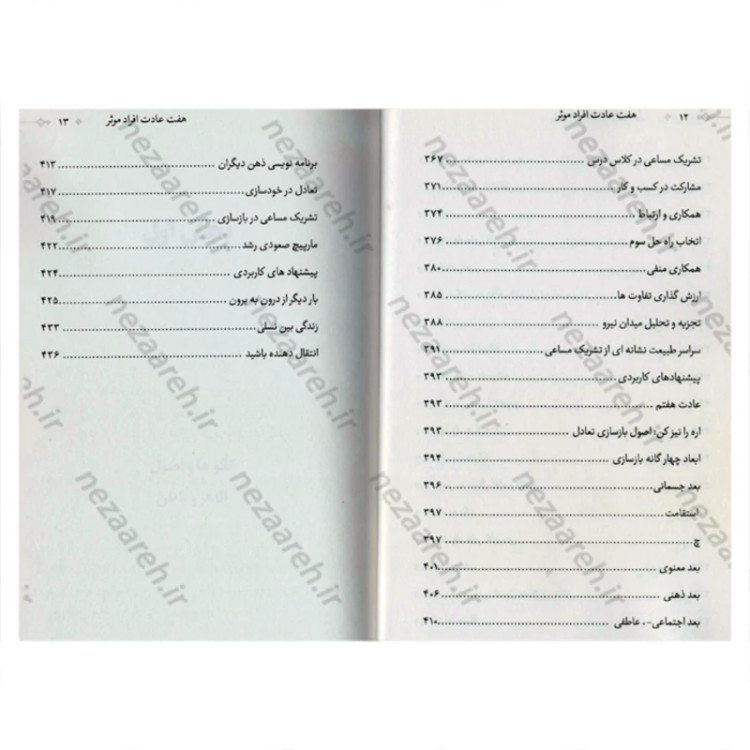 ۱۲ هفت عادت افراد موثر
تشریک مساعی در کلاس درس ........................ ۳۶۷
مشارکت در کسب و کار ........................ ۳۷۱
همکاری و ارتباط ........................ ۳۷۴
انتخاب راه حل سوم ........................ ۳۷۶
همکاری منفی ........................ ۳۸۰
ارزش گذاری تفاوت ها ........................ ۳۸۵
تجزیه و تحلیل میدان نیرو ........................ ۳۸۸
سراسر طبیعت نشانه ای از تشریک مساعی ........................ ۳۹۱
پیشنهادهای کاربردی ........................ ۳۹۳
عادت هفتم ........................ ۳۹۳
اره را تیز کن: اصول بازسازی تعادل ........................ ۳۹۳
ابعاد چهار گانه بازسازی ........................ ۳۹۴
بعد جسمانی ........................ ۳۹۶
استقامت ........................ ۳۹۷
چ ........................ ۳۹۷
بعد معنوی ........................ ۴۰۱
بعد ذهنی ........................ ۴۰۶
بعد اجتماعی-، عاطفی ........................ ۴۱۰
هفت عادت افراد موثر ۱۳
برنامه نویسی ذهن دیگران ........................ ۴۱۳
تعادل در خودسازی ........................ ۴۱۷
تشریک مساعی در بازسازی ........................ ۴۱۹
مارپیچ صعودی رشد ........................ ۴۲۲
پیشنهاد های کاربردی ........................ ۴۲۴
بار دیگر از درون به برون ........................ ۴۲۵
زندگی بین نسلی ........................ ۴۳۳
انتقال دهنده باشید ........................ ۴۳۶
nezaareh.ir